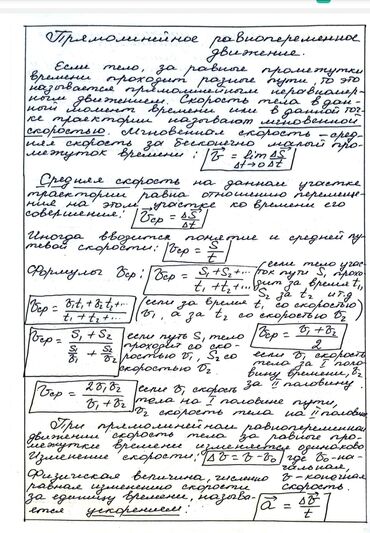 Прямолинейное равнопеременное
движение.
Если тело, за равные промежутки
времени проходит разные пути, то это
называется прямолинейным неравномер-
ным движением. Скорость тела в дан-
ный момент времени или в данной точ-
ке траектории называют мгновенной
скоростью. Мгновенная скорость – сред-
няя скорость за бесконечно малой про-
межуток времени: v⃗ = lim ΔS⃗/Δt Δt→0
Средняя скорость на данном участке
траектории равна отношению перемеще-
ния на этом участке ко времени его
совершения: v⃗ср = ΔS⃗/Δt
Иногда вводится понятие и средней пу-
тевой скорости: vср = S/t
Формулы vср: vср = (S₁+S₂+...)/(t₁+t₂+...) (если тело учас-
ток пути S₁ прохо-
дит за время t₁,
S₂ за t₂ и т.д
vср = (v₁t₁+v₂t₂+...)/(t₁+t₂+...) (если за время t₁ со скоростью
v₁, а за t₂ со скоростью v₂
vср = (S₁+S₂)/(S₁/v₁+S₂/v₂) если путь S₁ тело
проходит со ско-
ростью v₁, S₂ со
скоростью v₂.
vср = (v₁+v₂)/2
если v₁ скорость
тела за I поло-
вину времени, v₂
за II половину.
vср = 2v₁v₂/(v₁+v₂) если v₁ скорость
тела на I половине пути,
v₂ скорость тела на II половине
При прямолинейном равнопеременном
движении скорость тела за равные про-
межутки времени изменяется одинаково
Изменение скорости: Δv = v-v₀ где v₀-на-
чальная,
v - конечная
скорость.
Физическая величина, численно
равная изменению скорости
за единицу времени, назыво-
ется ускорением: a⃗ = Δv⃗/t